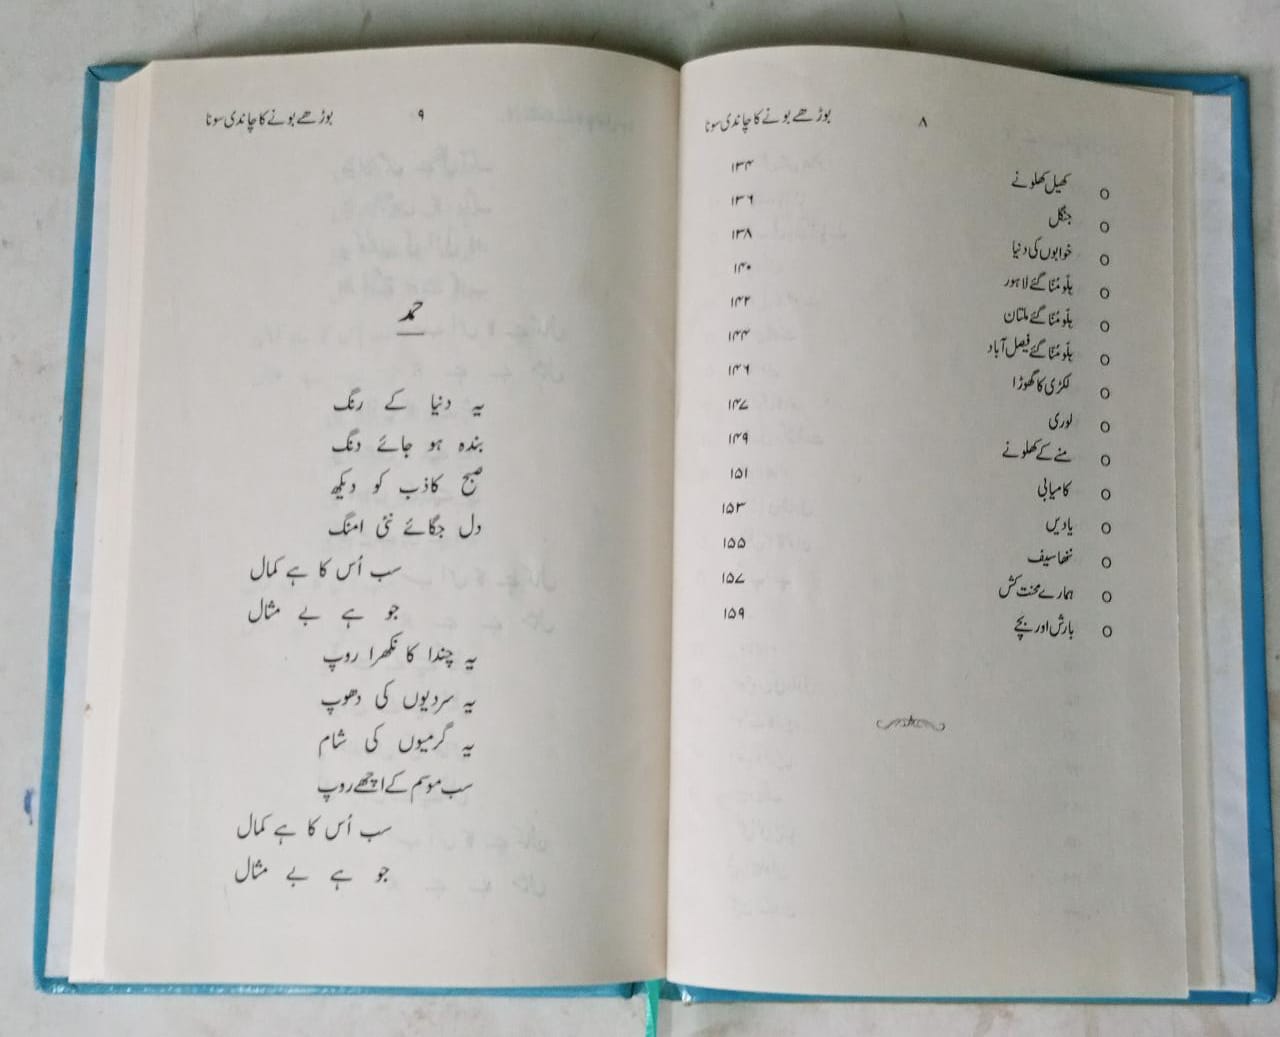 ۸ بوڑھے بونے کا چاندی سونا
○ کھیل کھلونے ۱۳۴
○ جنگل ۱۳۶
○ خوابوں کی دنیا ۱۳۸
○ بلّو مُنّا گئے لاہور ۱۴۰
○ بلّو مُنّا گئے ملتان ۱۴۲
○ بلّو مُنّا گئے فیصل آباد ۱۴۴
○ لکڑی کا گھوڑا ۱۴۶
○ لوری ۱۴۷
○ منے کے کھلونے ۱۴۹
○ کامیابی ۱۵۱
○ یادیں ۱۵۳
○ ننھا سیف ۱۵۵
○ ہمارے محنت کش ۱۵۷
○ بارش اور بچے ۱۵۹
۹ بوڑھے بونے کا چاندی سونا
حمد
یہ دنیا کے رنگ
بندہ ہو جائے دنگ
صبح کاذب کو دیکھ
دل جگائے نئی امنگ
سب اُس کا ہے کمال
جو ہے بے مثال
یہ چندا کا نکھرا روپ
یہ سردیوں کی دھوپ
یہ گرمیوں کی شام
سب موسم کے اچھے روپ
سب اُس کا ہے کمال
جو ہے بے مثال